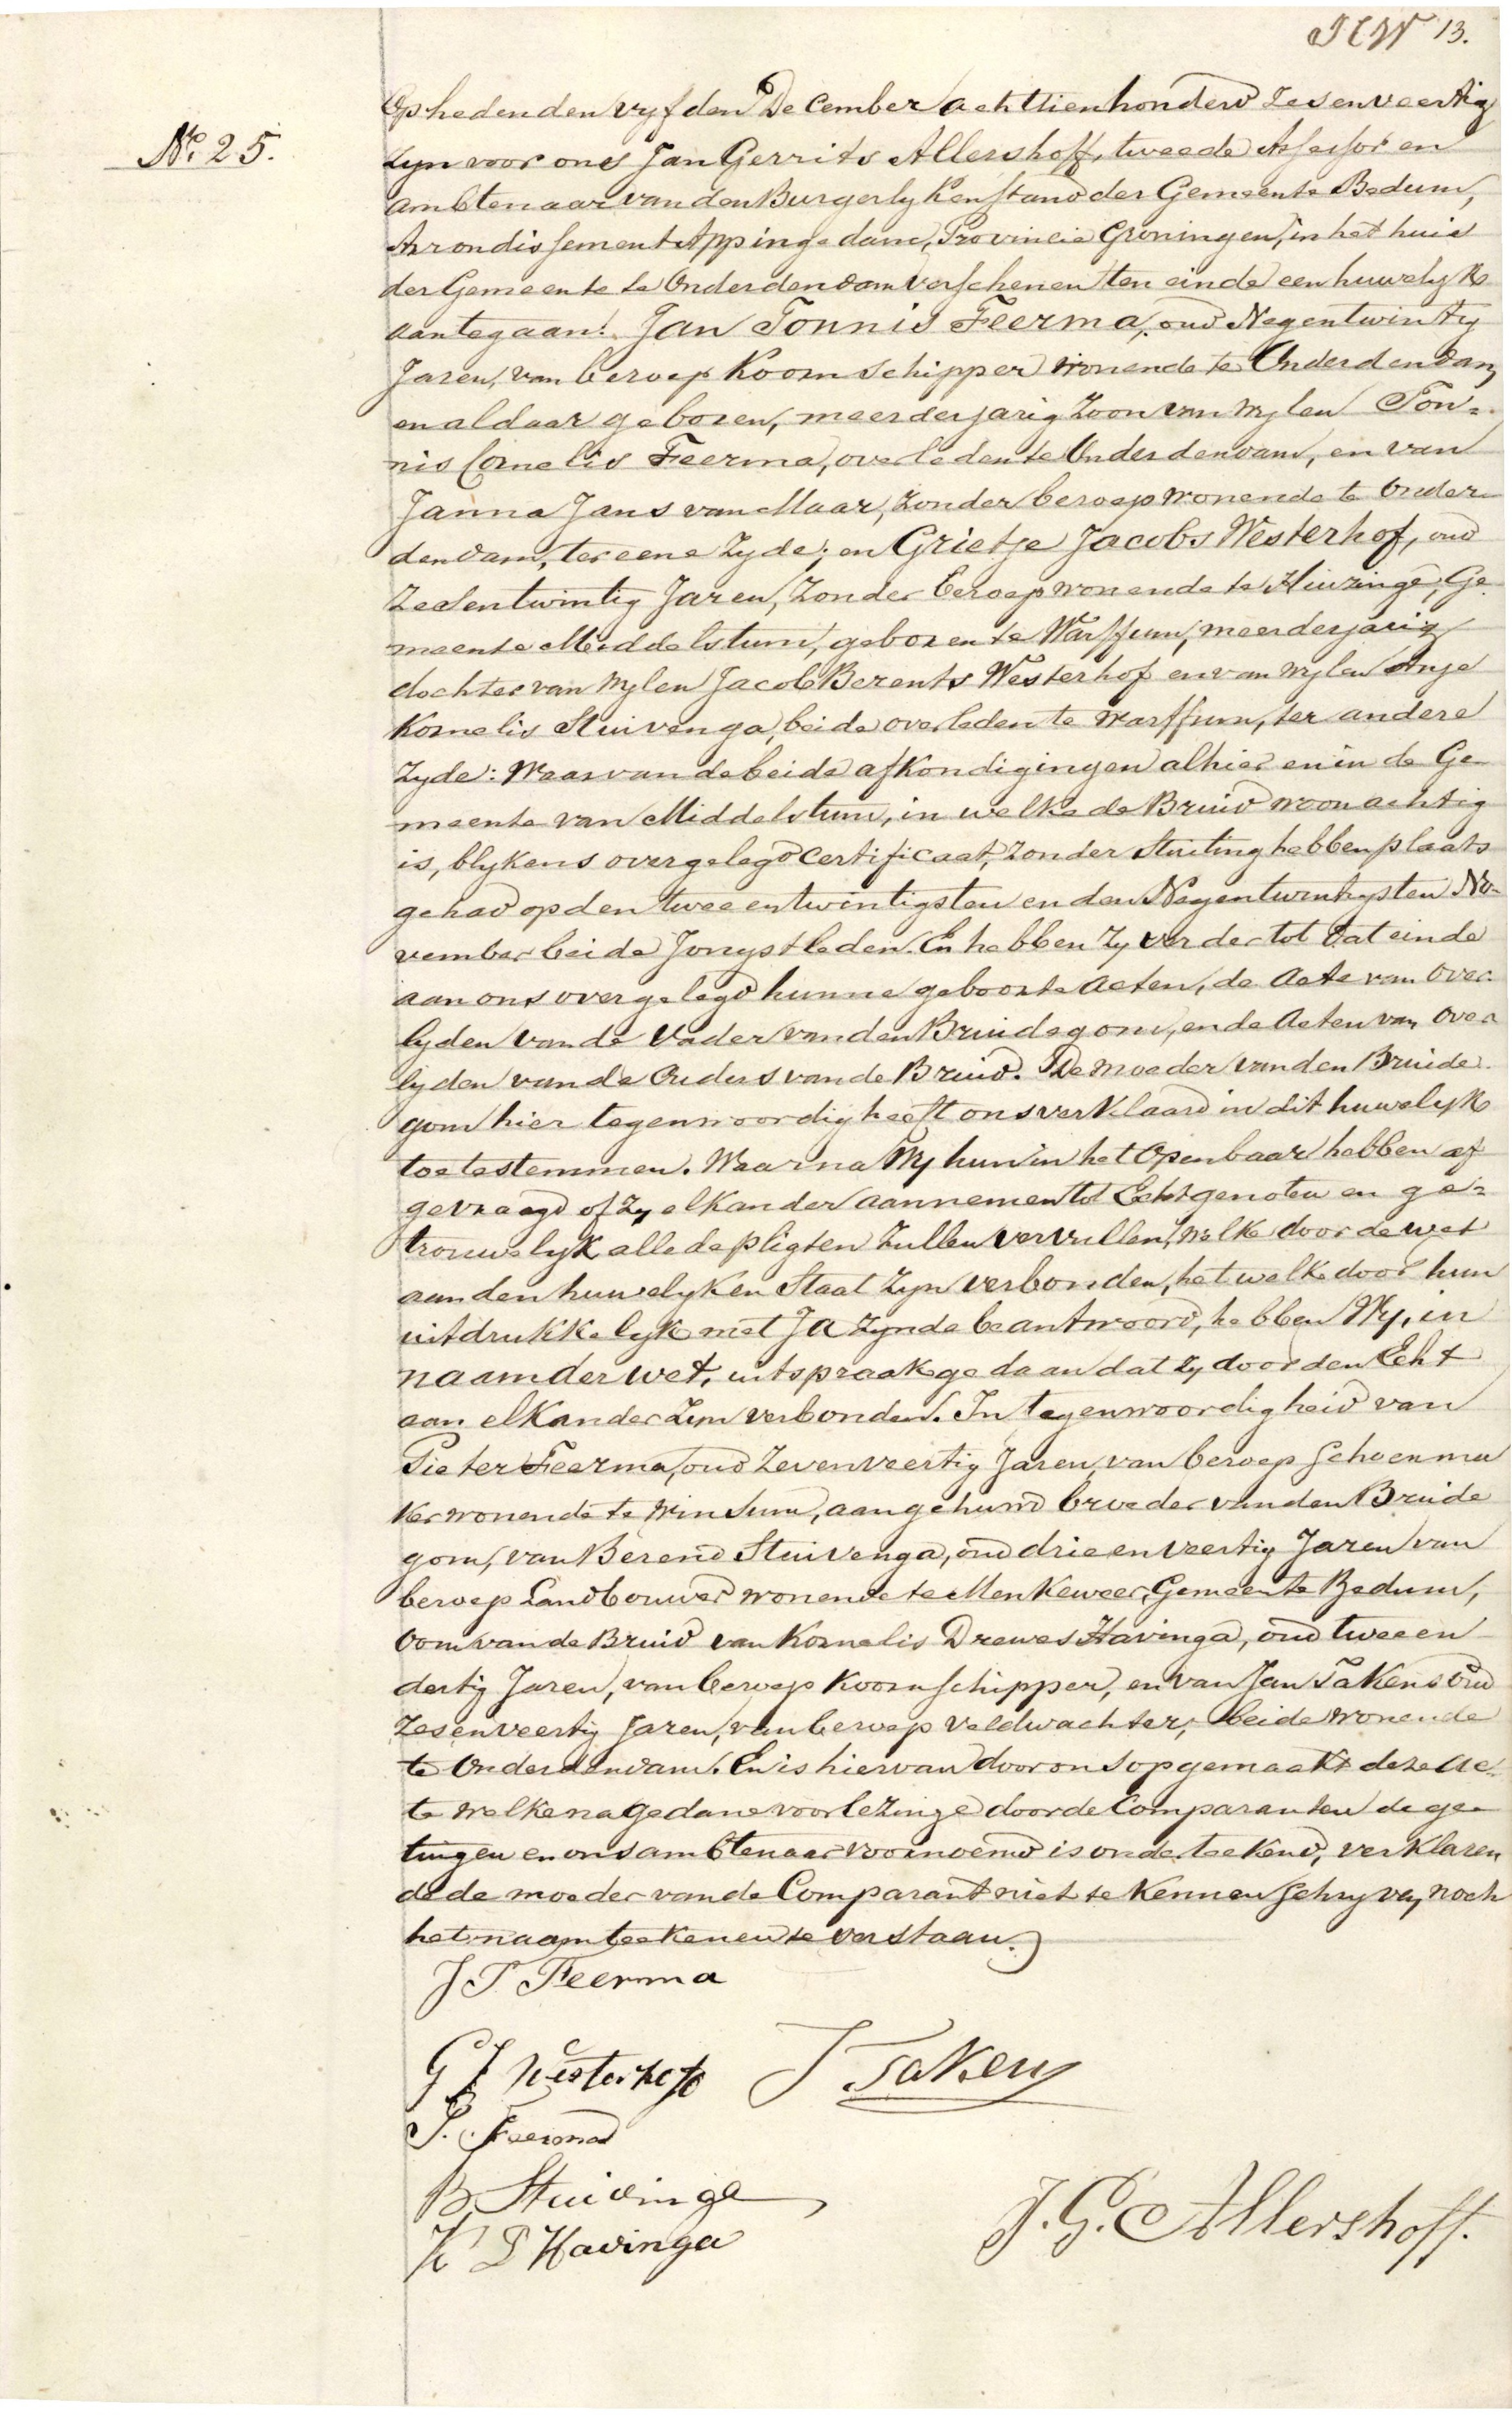 JCW 13.
No. 25.
Op heden den vyfden December achttienhonderd zesenveertig
zyn voor ons Jan Gerrits Allershoff, tweede Assessor en
ambtenaar van den Burgerlyken stand der Gemeente Bedum,
Arrondissement Appingedam, Provincie Groningen, in het huis
der Gemeente te Onderdendam verschenen ten einde een huwelyk
aantegaan: Jan Tonnis Feerma, oud Negentwintig
Jaren, van beroep Koornschipper wonende te Onderdendam,
en aldaar geboren, meerderjarig Zoon van wylen Ton=
nis Cornelis Feerma, overleden te Onderdendam, en van
Janna Jans van Maar, zonder beroep wonende te Onder-
dendam, ter eene Zyde; en Grietje Jacobs Westerhof, oud
Zesentwintig Jaren, Zonder beroep wonende te Huizinge, Ge-
meente Middelstum, geboren te Warffum, meerderjarig
dochter van wylen Jacob Berents Westerhof en van wylen Anje
Kornelis Stuivenga, beide overleden te Warffum, ter andere
Zyde: Waarvan de beide afkondigingen alhier en in de Ge-
meente van Middelstum, in welke de Bruid woonachtig
is, blykens overgelegd Certificaat, zonder stuiting hebben plaats
gehad op den tweeentwintigsten en den Negentwintigsten No-
vember beide Jongstleden. En hebben zy verder tot dat einde
aan ons overgelegd hunne geboorte Acten, de Acte van Over-
lyden van de Vader van den Bruidegom, en de Acten van Over
lyden van de Ouders van de Bruid. De moeder van den Bruide-
gom hier tegenwoordig heeft ons verklaard in dit huwelyk
toetestemmen. Waarna Wy hun in het Openbaar hebben af
gevraagd of zy elkander aannemen tot Echtgenoten en ge=
trouwelyk alle de pligten zullen vervullen, welke door de wet
aan den huwelyken Staat zyn verbonden, het welke door hun
uitdrukkelyk met Ja zynde beantwoord, hebben Wy, in
naam der wet, uitspraak gedaan dat zy door den Echt
aan elkander zyn verbonden. In tegenwoordigheid van
Pieter Feerma, oud Zevenveertig Jaren, van beroep Schoenma
ker wonende te Winsum, aangehuwd broeder van den Bruide
gom, van Berend Stuivenga, oud drieenveertig Jaren van
beroep Landbouwer wonende te Menkeweer, Gemeente Bedum,
Oom van de Bruid van Kornelis Drewes Havinga, oud tweeen
dertig Jaren, van beroep Koornschipper, en van Jan Takens oud
Zesenveertig Jaren, van beroep veldwachter, beide wonende
te Onderdendam. En is hiervan door ons opgemaakt deze Ac-
te welke na gedane voorlezinge door de Comparanten de ge-
tuigen en ons ambtenaar voornoemd is onderteekend, verklaren
de de moeder van de Comparant niet te kennen schryven, noch
het naamteekenen te verstaan.
J T Feerma
G J Westerhof J Takens
P. Feerma
B Stuivinga
K D Havinga J. G. Allershoff.